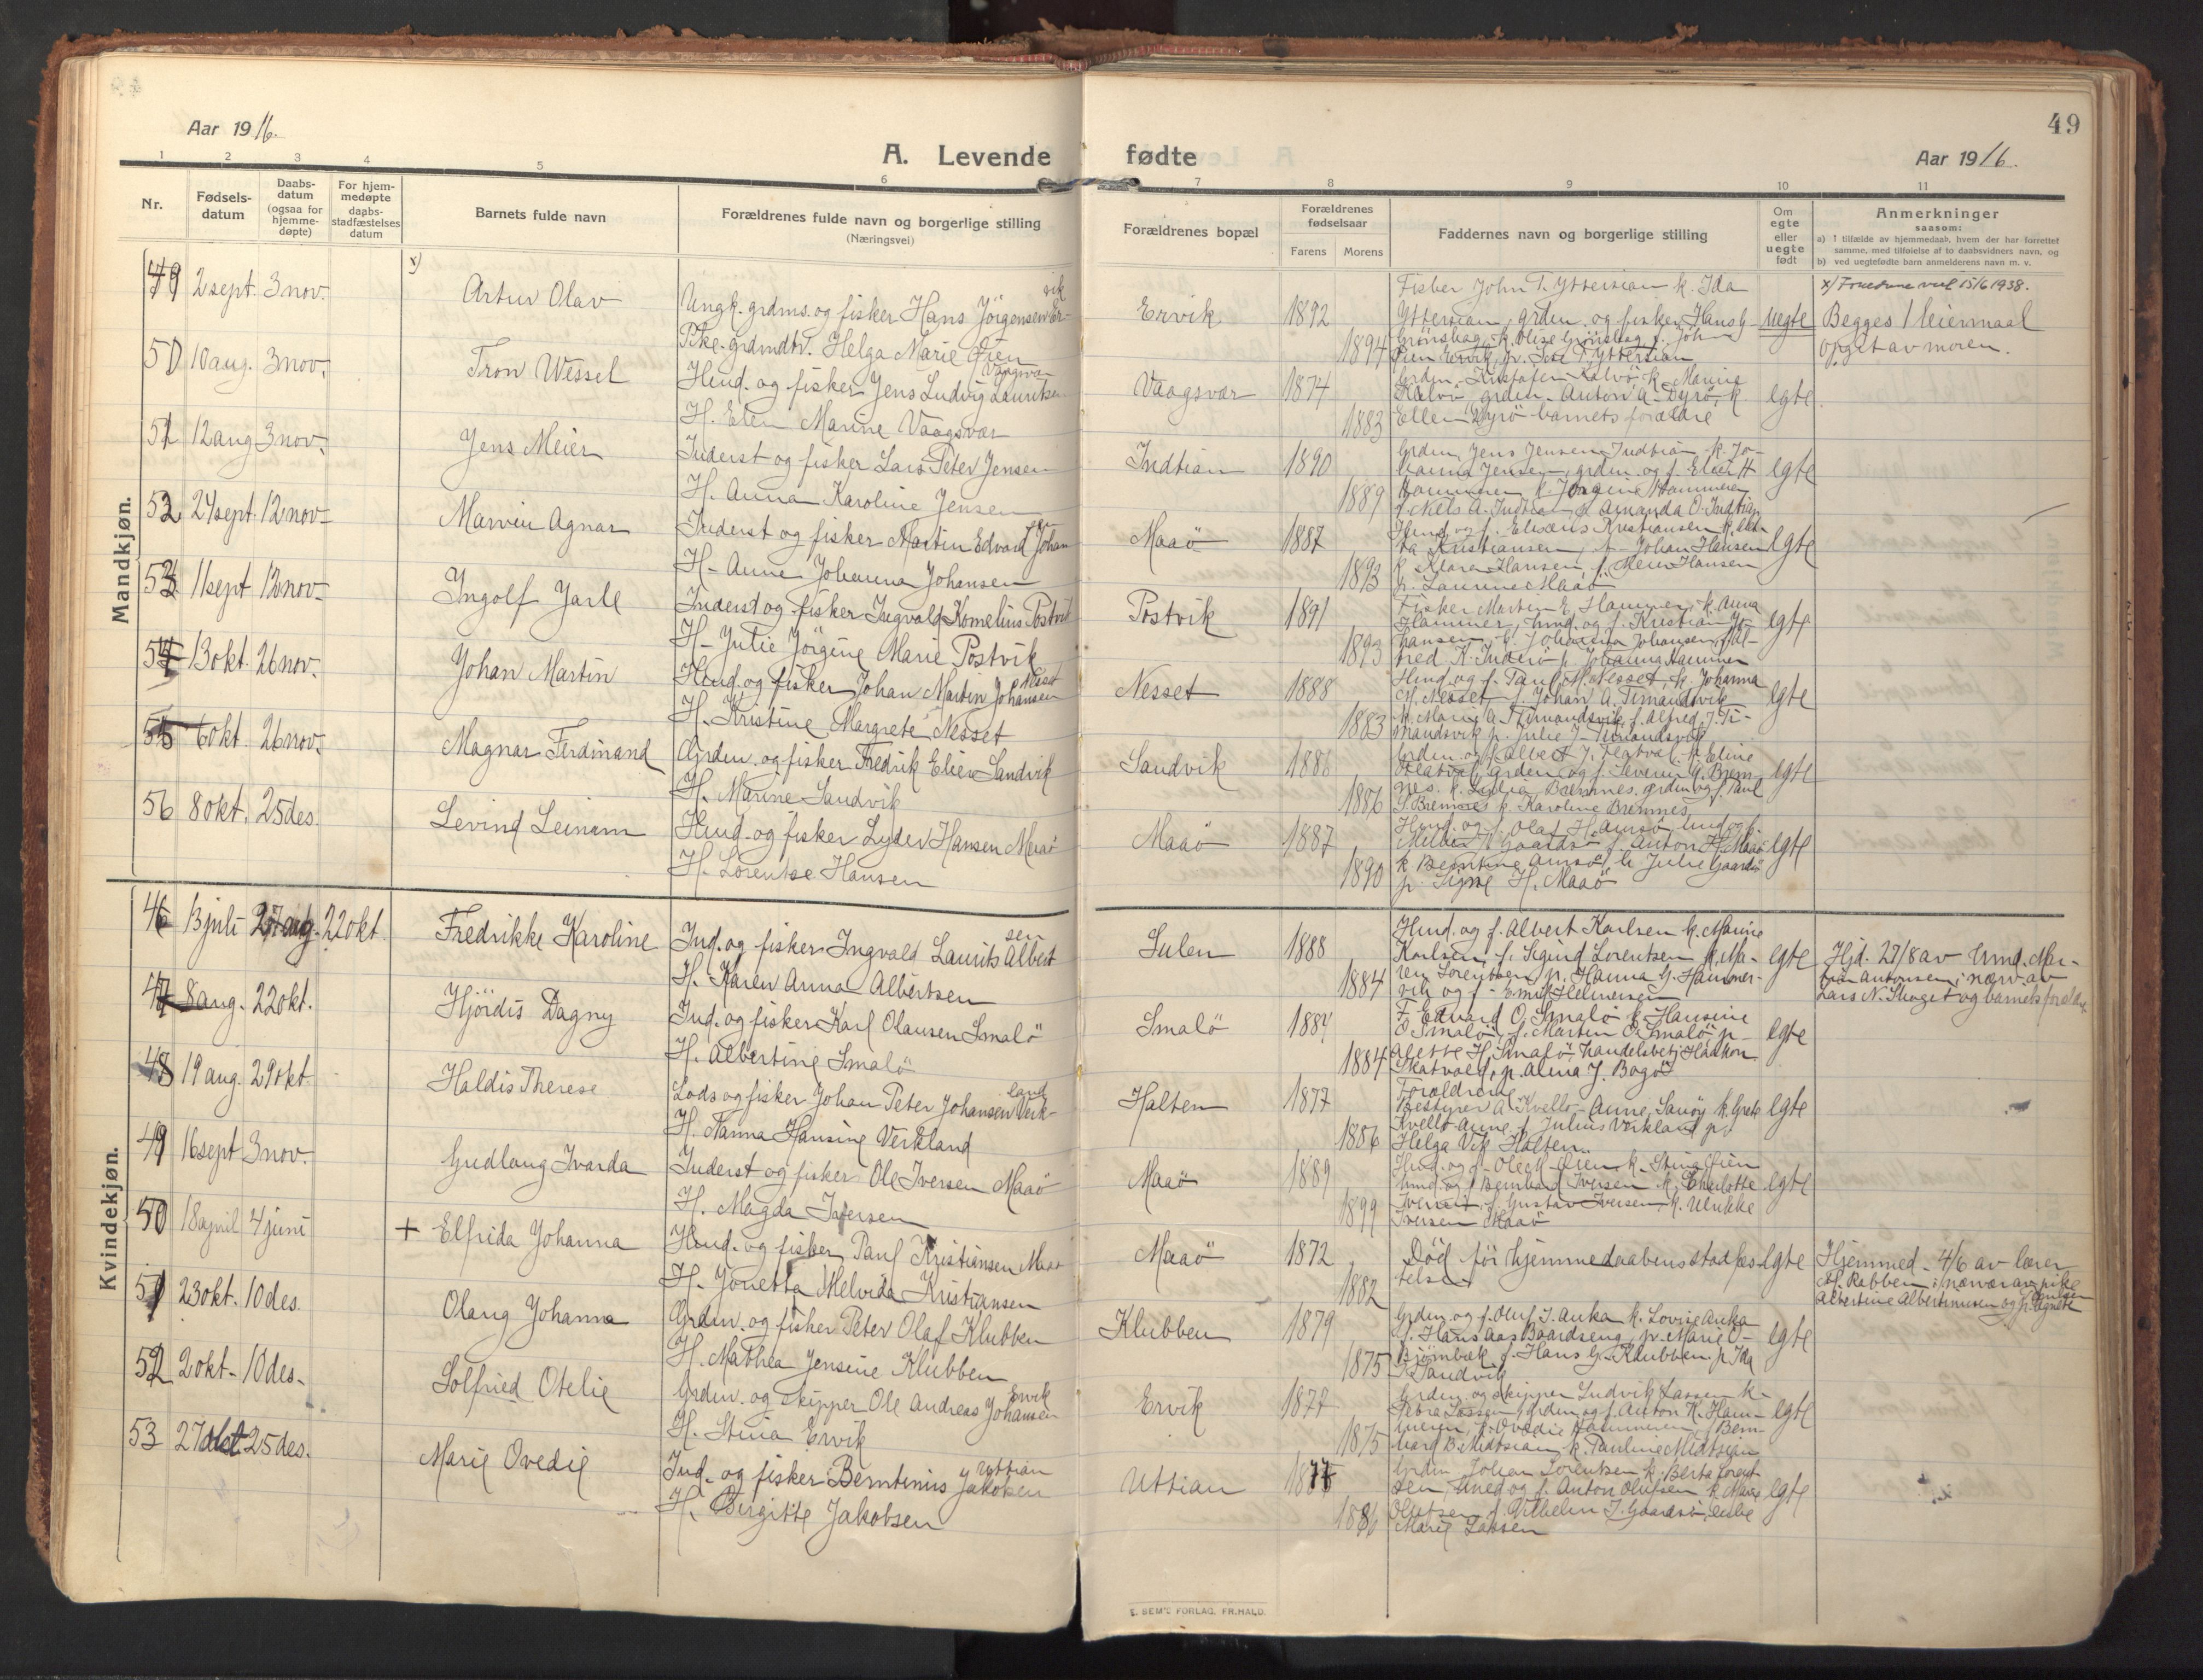 49
Aar 1916.
A. Levende fødte
Aar 1916.
1 2 3 4 5 6 7 8 9 10 11
Nr.
Fødsels-datum
Daabs-datum (ogsaa for hjemme-døpte)
For hjem-medøpte daabs-stadfæstelses datum
Barnets fulde navn
Forældrenes fulde navn og borgerlige stilling
(Næringsvei)
Forældrenes bopæl
Forældrenes fødselsaar
Farens Morens
Faddernes navn og borgerlige stilling
Om egte eller uegte født
Anmerkninger
saasom:
a) I tilfælde av hjemmedaab, hvem der har forrettet
samme, med tilføielse af to daabsvidners navn, og
b) ved uegtefødte barn anmelderens navn m. v.
Mandkjøn.
49 2 sept. 3 nov. x) Artur Olav
Ungk. grdms. og fisker Hans Jörgensen Ervik
Pike grdmdtr. Helga Marie Öien
Ervik 1892 1894
Fisker John T. Yttersian k. Ida
Yttersian, grdm. og fisker Hans
uegte
Begges 1 leiermaal
opgit av moren.
50 10 aug. 3 nov. Tron Wessel
Hmd. og fisker Jens Ludvig Lauritsen Vaagsvær
H. Elen Marine Vaagsvær
Vaagsvær 1874 1883
Grdm. Kristofer Kalvö k. Marine
Kalvö, grdm. Anton A. Dyrö, k
Ellen Dyrö barnets forældre
egte
51 12 aug 3 nov. Jens Meier
Inderst og fisker Lars Peter Jensen
H. Anna Karoline Jensen
Indtian 1890 1889
Grdm. Jens Jensen Indtian k. Jo-
hanna Jensen, grdm. og f. Elier H
Hammeren k. Jörgine Hammeren
f. Nels A. Indtian p. Amanda O. Indtian
egte
52 24 sept. 12 nov. Marvin Agnar
Inderst og fisker Martin Edvard Johansen
H. Anne Johanna Johansen
Maaö 1887 1893
Kristiansen, f. Johan Hansen
k Klara Hansen f. Meier Hansen
p. Laurine Maaö
egte
53 11 sept 12 nov. Ingolf Jarle
Inderst og fisker Ingvald Kornelius Postvik
H. Julie Jörgine Marie Postvik
Postvik 1891 1893
Fisker Martin E. Hammer, k. Anna
Hammer, hmd. og f. Kristian Jo-
hansen, k. Johanna Johansen, f. Al-
fred K. Inderö p. Johanna Hammer
egte
54 13 okt. 26 nov. Johan Martin
Hmd. og fisker Johan Martin Johansen Nesset
H. Kristine Margrete Nesset
Nesset 1888 1883
Hmd. og f. Paul M. Nesset, k. Johanna
M. Nesset, f. Johan A. Timandsvik
k. Marie A. Timandsvik, f. Alfred J. Ti-
mandsvik p. Julie J. Timandsvik
egte
55 6 okt. 26 nov. Magnar Ferdinand
Grdm. og fisker Fredrik Elier Sandvik
H. Marine Sandvik
Sandvik 1886 1886
Grdm. og f. Albert J. Flatval k. Eline
Flatval, grdm. og f. Severin G. Brem-
nes. k. Lydia Bremnes, grdm. og f. Paul
S. Bremnes k. Karoline Bremnes
egte
56 8 okt. 25 des. Levind Leinum
Hmd. og fisker Lyder Hansen Maaö
H. Lorentse Hansen
Maaö 1887 1890
Hmd. og f. Olaf H. Aursö
f. Anton H. Maaö
k Berntine Aursö k. Julie Gaardsö
p. Signe H. Maaö
egte
Kvindekjøn.
46 13 juli 27 aug. 22 okt Fredrikke Karoline
Ind. og fisker Ingvald Laurits Albertsen
H. Karen Anna Albertsen
Sulen 1888 1884
Hmd. og f. Albert Karlsen k. Marine
Karlsen, f. Sigurd Lorentsen k. Ma-
ren Lorentsen p. Hanna G. Hammer-
vik og f. Emil Helmersen
egte
Hjd. 27/8 av hmd. Mar-
tin Antonsen i nærv. av
Lars N. Skaget og barnets forældre
47 8 aug. 22 okt. Hjördis Dagny
Ind. og fisker Karl Olausen Smalö
H. Albertine Smalö
Smalö 1884 1884
F. Edvard O. Smalö k. Hansine
O Smalö, f. Martin O. Smalö p
Alette H. Smalö, handelsbetj. Haakon
Skatvold, p. Alma J. Bogö
egte
48 19 aug. 29 okt. Haldis Therese
Lods og fisker Johan Peter Johansen Verkland
H. Nanna Hansine Verkland
Halten 1877 1886
Forældrene
Bestyrer A. Kvello Anne Sanöy k. Grete
Kvello f. Julius Verkland p.
Helga Vik Halten
egte
49 16 sept 3 nov. Gudlaug Ivarda
Inderst og fisker Ole Iversen Maaö
H. Magda Iversen
Maaö 1889 1899
Hmd. og f. Ole K. Öien k. Stina Öien
hmd. og f. Bernhard Iversen k. Charlotte
Iversen, f. Gustav Iversen k. Ulrikke
Iversen Maaö
egte
50 18 april 4 juni + Elfrida Johanna
Hmd. og fisker Paul Kristiansen Maaö
H. Jonetta Melvida Kristiansen
Maaö 1872 1882
Död för hjemmedaabens stadfæs-
telse
egte
Hjemmed. 4/6 av lærer
M. Rabben i nærvær av pike
Albertine Albertsen og p. Agnete
51 23 okt. 10 des. Olaug Johanna
Grdm. og fisker Peter Olaf Klubben
H. Mathea Jensine Klubben
Klubben 1879 1875
Grdm. og f. Oluf J. Auka k. Lovise Auka
f. Hans Aas Baardseng, p. Marie O
Björnbæk f. Hans G. Klubben p. Ida
Sandvik
egte
52 2 okt. 10 des. Solfried Otelie
Grdm. og skipper Ole Andreas Johansen Ervik
H. Stina Ervik
Ervik 1877 1875
Grdm. og skipper Ludvik Lassen k.
Petra Lassen, grdm. og f. Anton K. Ham-
meren, p. Ovedie Hammeren, f. Bern-
hard B. Midtsian k. Pauline Midtsian
egte
53 27 okt. 25 des. Marie Ovedie
Ind. og fisker Berntinus Jakobsen Uttian
H. Birgitte Jakobsen
Uttian 1886
Grdm. Johan Lorentsen k. Berta Lorent-
sen, hmd. og f. Anton Olufsen k. Marie
Olufsen f. Vilhelm J. Gaardsö, enke
Marie Lassen
egte
E. SEM'S FORLAG, FR.HALD.